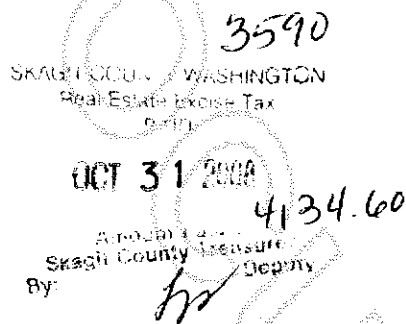 3590
SKAGIT COUNTY WASHINGTON
Real Estate Excise Tax
PAID
OCT 31 2008
4134.60
Amount Paid
Skagit County Treasurer
By: Deputy